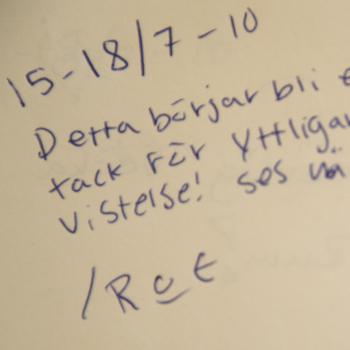 15-18/7-10
Detta börjar bli
tack för yttligar
vistelse! ses nä
/R o E